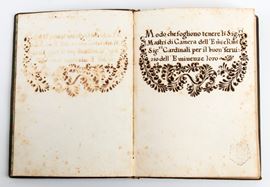 Modo che sogliono tenere li Sig.ri
Mastri di Camera dell' Em.i e R.mi
Sig.ri Cardinali per il buon servi
zio dell' Eminenze loro